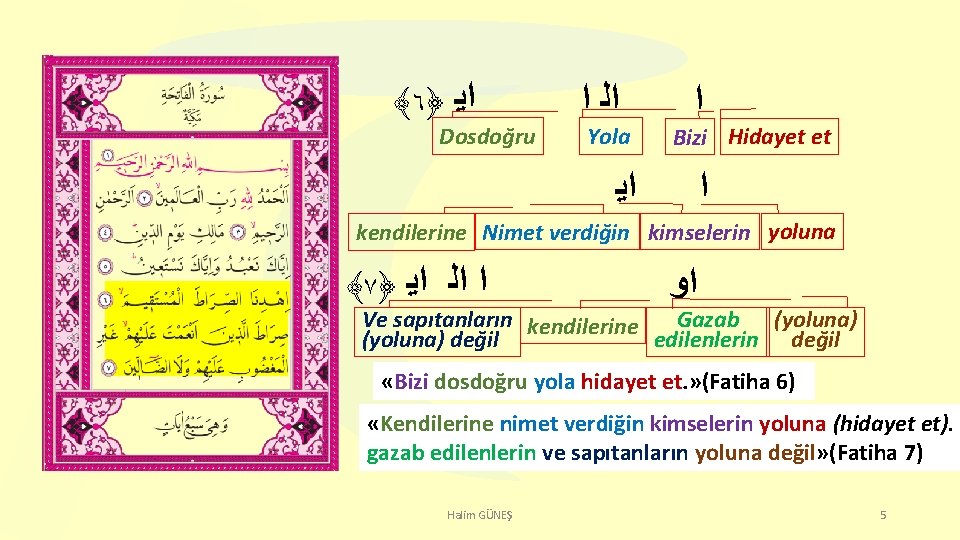 سُورَةُ الْفَاتِحَةِ
مَكِّيَّةٌ
بِسْمِ اللّٰهِ الرَّحْمٰنِ الرَّحِيمِ ﴿١﴾
اَلْحَمْدُ لِلّٰهِ رَبِّ الْعَالَمِينَ ﴿٢﴾ اَلرَّحْمٰنِ
الرَّحِيمِ ﴿٣﴾ مَالِكِ يَوْمِ الدِّينِ ﴿٤﴾
اِيَّاكَ نَعْبُدُ وَاِيَّاكَ نَسْتَعِينُ ﴿٥﴾
اِهْدِنَا الصِّرَاطَ الْمُسْتَقِيمَ ﴿٦﴾
صِرَاطَ الَّذِينَ اَنْعَمْتَ عَلَيْهِمْ غَيْرِ
الْمَغْضُوبِ عَلَيْهِمْ وَلَا الضَّالِّينَ ﴿٧﴾
وَهِيَ سَبْعُ اٰيَاتٍ
ا ال ا ايـ ﴿٦﴾
Dosdoğru Yola Bizi Hidayet et
ا ايـ
kendilerine Nimet verdiğin kimselerin yoluna
او ا الـ ايـ ﴿٧﴾
Ve sapıtanların (yoluna) değil kendilerine Gazab edilenlerin (yoluna) değil
«Bizi dosdoğru yola hidayet et.»(Fatiha 6)
«Kendilerine nimet verdiğin kimselerin yoluna (hidayet et).
gazab edilenlerin ve sapıtanların yoluna değil»(Fatiha 7)
Halim GÜNEŞ
5